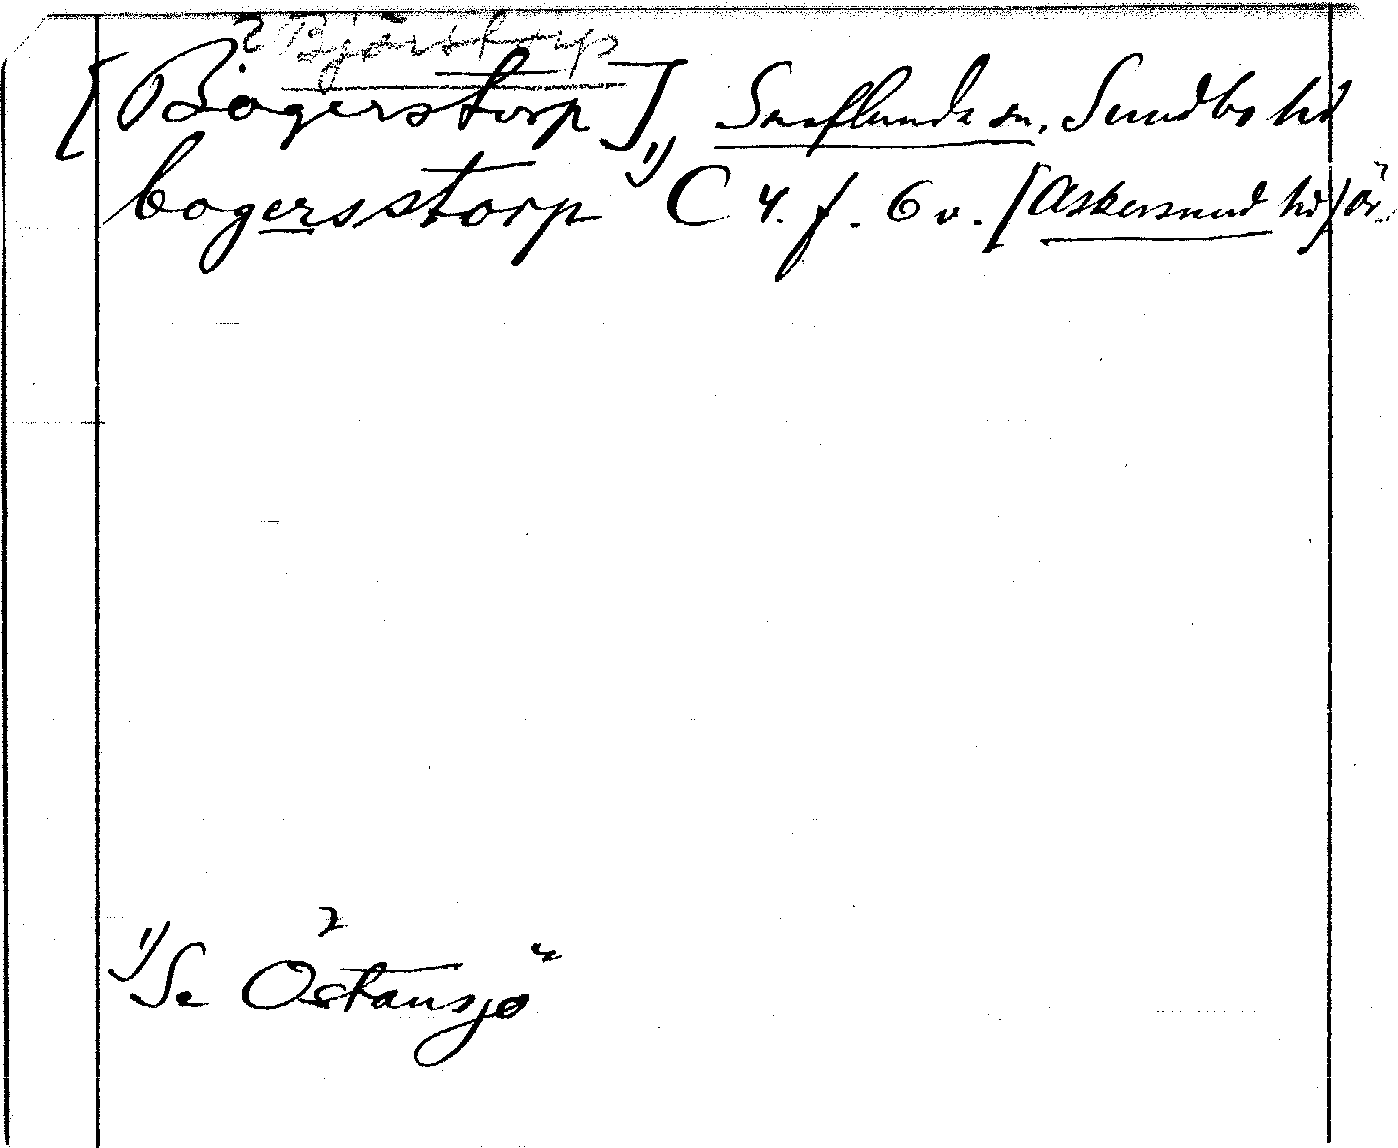 ? Björstorp
[Bogerstorp]¹) Snaflunda sn, Sundbo hd
bogersstorp C 4. f. 6 v. [Askersund hd] ör.
¹) Se Östansjö